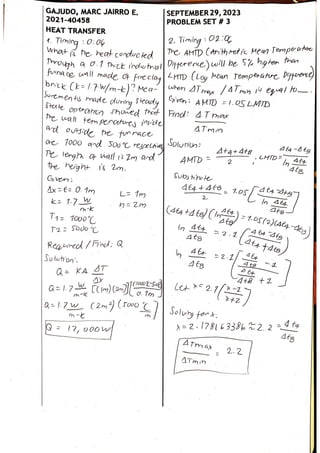 GAJUDO, MARC JAIRRO E.
2021-40458
HEAT TRANSFER
SEPTEMBER 29, 2023
PROBLEM SET # 3
1. Timing: 0:06
What is the heat conducted
through a 0.1 thick industrial
furnace wall made of fireclay
brick (k=1.7 W/m-k)? Mea-
surements made during steady
state operation showed that
the wall temperatures inside
and outside the furnace
are 1000 and 500°C respectively
The length of wall is 1m and
the height is 2m.
Given:
Δx=t= 0.1m L= 1m
k= 1.7 W/m-k h= 2m
T1= 1000°C
T2= 500°C
Required / Find: Q
Solution:
Q= KA ΔT/Δx
Q= 1.7 W/m-k [(1m)(2m)]
Q= 1.7 W/m-k (2m²)
Q = 17,000W
2. Timing: 02:
The AMTD (Arithmetic Mean Temperature
Difference) will be 5% higher than
LMTD (Log Mean Temperature Difference)
when ΔTmax / ΔTmin is equal to __.
Given: AMTD = 1.05 LMTD
Find: ΔTmax
ΔTmin
Solution:
AMTD = (ΔtA+ΔtB)/2, LMTD = (ΔtA-ΔtB)/(ln ΔtA/ΔtB)
Substitute
(ΔtA+ΔtB)/2 = 1.05 [(ΔtA-ΔtB)/(ln ΔtA/ΔtB)]
(ΔtA+ΔtB)(ln ΔtA/ΔtB) = 1.05(2)(ΔtA-ΔtB)
ln ΔtA/ΔtB = 2.1 [(ΔtA-ΔtB)/(ΔtA+ΔtB)]
ln ΔtA/ΔtB = 2.1 [(ΔtA/ΔtB - 1)/(ΔtA/ΔtB + 1)]
Solving for x:
x= 2.178163386 ≈ 2.2 = ΔtA/ΔtB
ΔTmax/ΔTmin = 2.2